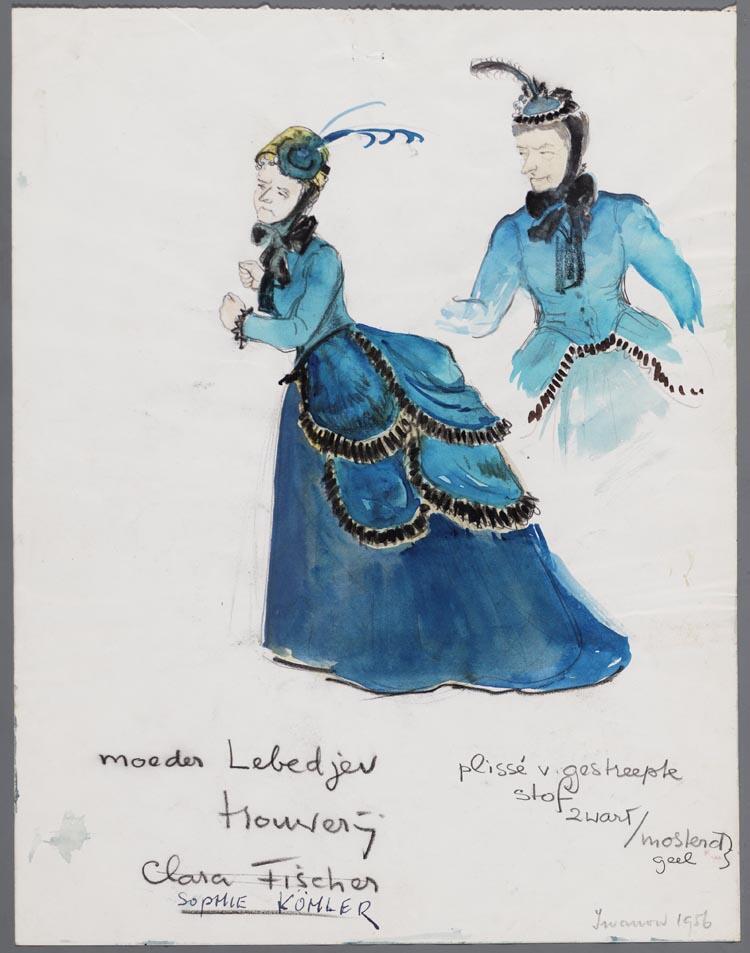 moeder Lebedjev
trouwerij
Clara Fischer
SOPHIE KÖHLER
plissé v. gestreepte
stof
zwart/mosterd
geel
Iwanow 1956